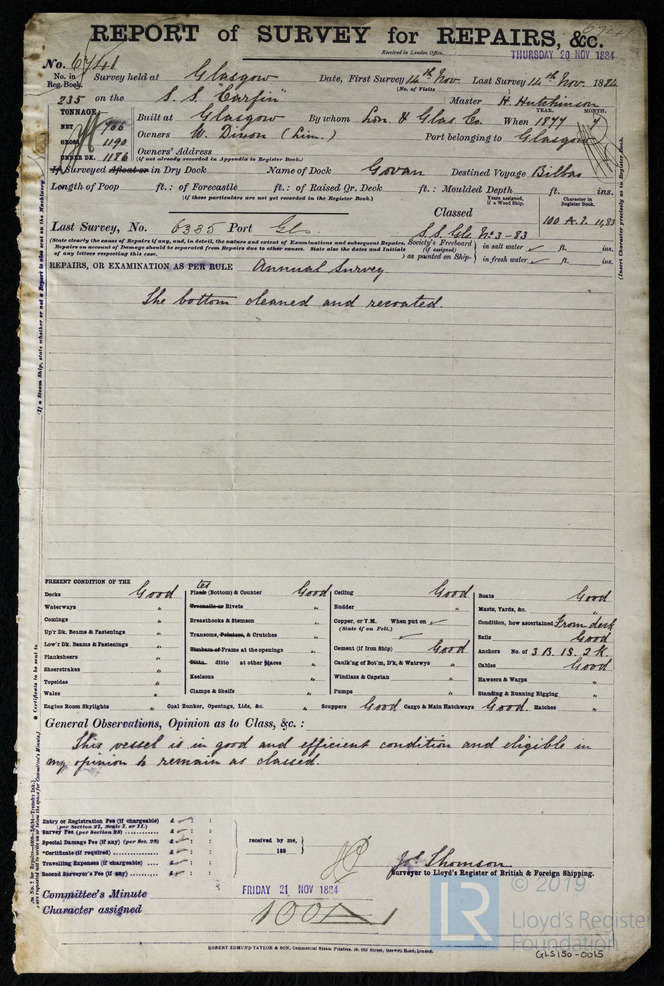 REPORT of SURVEY for REPAIRS, &c.
Received in London Office,
THURSDAY 20 NOV 1884
No. 6741
No. in Reg. Book. Survey held at Glasgow Date, First Survey 14th Nov. Last Survey 14th Nov. 1884
(No. of Visits
235 on the S. S. "Carfin" Master H. Hutchinson
TONNAGE Built at Glasgow By whom Lon. & Glas Co. When 1877
YEAR. MONTH.
NET 766
GROSS 1190
UNDER DK. 1186
Owners W. Dixon (Lim.) Port belonging to Glasgow
Owners' Address
(if not already recorded in Appendix to Register Book.)
If Surveyed Afloat or in Dry Dock Name of Dock Govan Destined Voyage Bilbao
Length of Poop ft.: of Forecastle ft.: of Raised Qr. Deck ft.: Moulded Depth ft. ins.
(if these particulars are not yet recorded in the Register Book.)
Years assigned, if a Wood Ship.
Character in Register Book.
Classed
100 A.1. 11,83
Last Survey, No. 6335 Port Gls.
S.S. Gls. No 3-83
(State clearly the cause of Repairs if any, and, in detail, the nature and extent of Examinations and subsequent Repairs.
Repairs on account of Damage should be separated from Repairs due to other causes. State also the dates and Initials
of any letters respecting this case.
Society's Freeboard (if assigned) as painted on Ship, in salt water ft. ins.
in fresh water ft. ins.
REPAIRS, OR EXAMINATION AS PER RULE Annual Survey.
The bottom cleaned and recoated.
PRESENT CONDITION OF THE
Decks Good
Waterways "
Comings "
Up'r Dk. Beams & Fastenings "
Low'r Dk. Beams & Fastenings "
Planksheers "
Sheerstrakes "
Topsides "
Wales "
Engine Room Skylights "
Plates (Bottom) & Counter Good
Treenails or Rivets "
Breasthooks & Stemson "
Transoms, Pointers, & Crutches "
Timbers or Frames at the openings "
Ditto. ditto at other places "
Keelsons "
Clamps & Shelfs "
Coal Bunker, Openings, Lids, &c. "
Ceiling Good
Rudder "
Copper, or Y.M. When put on
(State if on Felt.)
Cement (if Iron Ship) Good
Caulk'ng of Bot'm, D'k, & Watrwys "
Windlass & Capstan "
Pumps "
Scuppers Good Cargo & Main Hatchways Good Hatches "
Boats Good
Masts, Yards, &c. "
Condition, how ascertained From deck
Sails Good
Anchors No. of 3 B. 1 S. 2 K.
Cables Good
Hawsers & Warps "
Standing & Running Rigging "
General Observations, Opinion as to Class, &c. :
This vessel is in good and efficient condition and eligible in
my opinion to remain as classed.
Entry or Registration Fee (if chargeable) £ : :
(per Section 27, Scale I. or II.)
Survey Fee (per Section 28) £ : :
Special Damage Fee (if any) (per Sec. 28) £ : :
*Certificate (if required) £ : :
Travelling Expenses (if chargeable) £ : :
Second Surveyor's Fee (if any) £ : :
received by me,
188
Jos. Thomson
Surveyor to Lloyd's Register of British & Foreign Shipping.
Committee's Minute FRIDAY 21 NOV 1884
Character assigned 100 A 1
© 2019
LR
Lloyd's Register
Foundation
ROBERT EDMUND TAYLOR & SON, Commercial Steam Printers, 19, Old Street, Goswell Road, London.
GLS150-0015